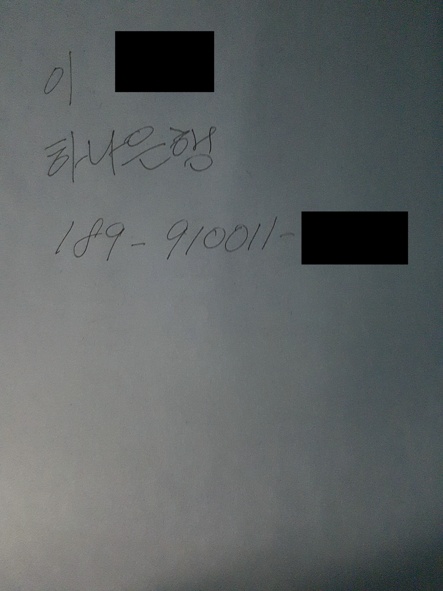 이
하나은행
189-910011-